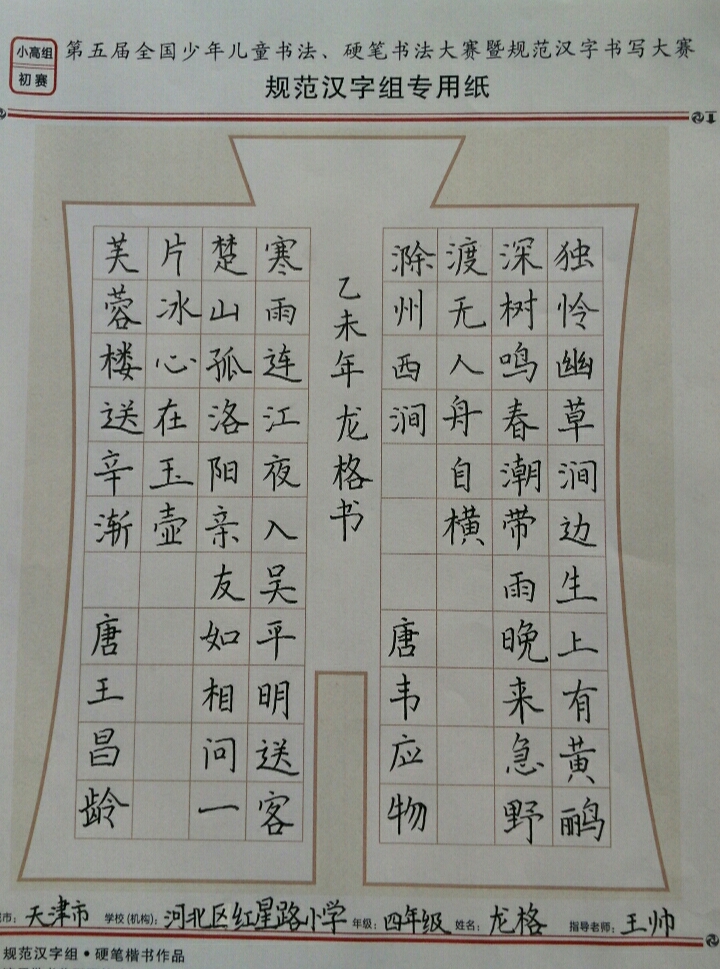 小高组
初赛
第五届全国少年儿童书法、硬笔书法大赛暨规范汉字书写大赛
规范汉字组专用纸
独怜幽草涧边生上有黄鹂
深树鸣春潮带雨晚来急野
渡无人舟自横
滁州西涧 唐韦应物
乙未年龙格书
寒雨连江夜入吴平明送客
楚山孤洛阳亲友如相问一
片冰心在玉壶
芙蓉楼送辛渐 唐王昌龄
市：天津市 学校(机构)：河北区红星路小学 年级：四年级 姓名：龙格 指导老师：王帅
规范汉字组·硬笔楷书作品